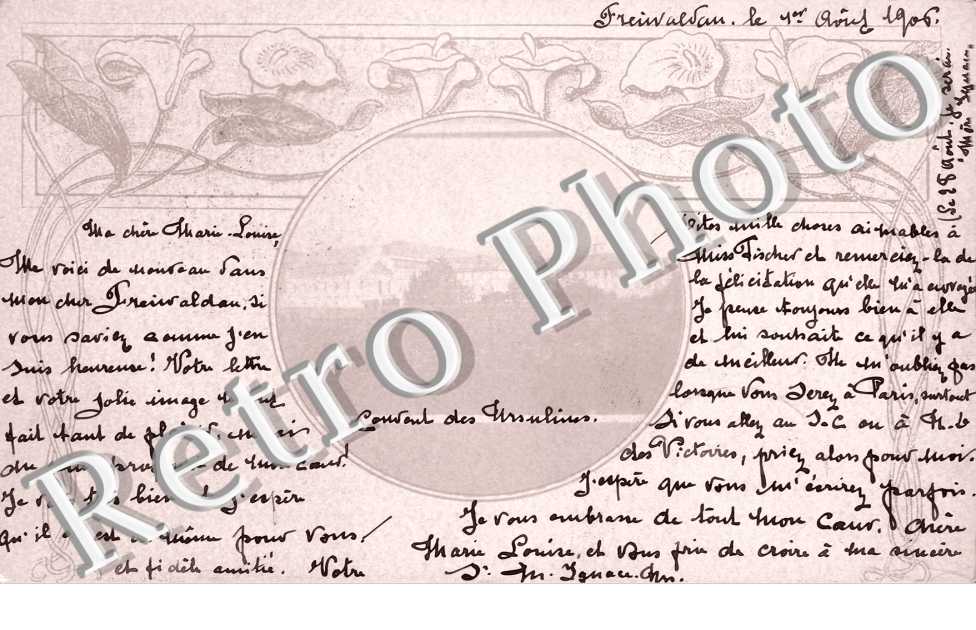 Freiwaldau. le 1er Août 1906.
(Le 28 Août, je serai
"Mère Ignace."
Ma chère Marie-Louise,
Me voici de nouveau dans
mon cher Freiwaldau, si
vous saviez comme j'en
suis heureuse! Votre lettre
et votre jolie image
fait tant de
du de mon cœur!
Je bien et j'espère
qu'il en est de même pour vous!
et fidèle amitié. Votre
Couvent des Ursulines.
Dites mille choses aimables à
Miss Fischer et remerciez-la de
la félicitation qu'elle m'a envoyée
Je pense toujours bien à elle
et lui souhaite ce qu'il y a
de meilleur. Ne m'oubliez pas
lorsque vous serez à Paris, surtout
si vous allez au S.C. ou à N.D
des Victoires, priez alors pour moi.
J'espère que vous m'écrirez parfois.
Je vous embrasse de tout mon cœur, chère
Marie Louise, et vous prie de croire à ma sincère
Sr. M. Ignace.
Retro Photo